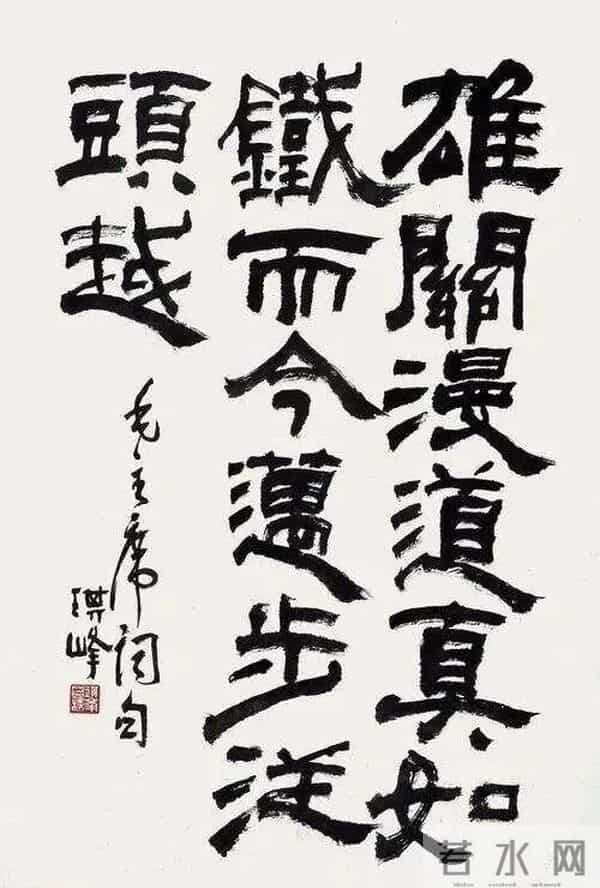 雄關漫道真如
鐵而今邁步從
頭越
毛主席詞句
琪峰
若水网